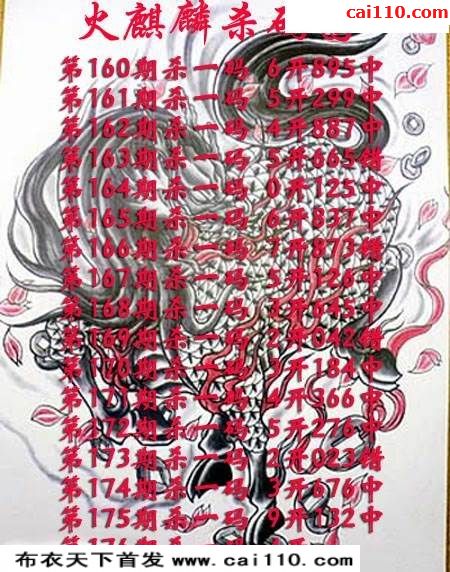 cai110.com
火麒麟杀
第160期杀一码 6开895中
第161期杀一码 5开299中
第162期杀一码 4开887中
第163期杀一码 5开665错
第164期杀一码 0开125中
第165期杀一码 6开837中
第166期杀一码 7开873错
第167期杀一码
第168期杀一码
第169期杀一码 2开042错
第170期杀一码 3开184中
第171期杀一码 4开366中
第172期杀一码 5开276中
第173期杀一码 2开023错
第174期杀一码 3开676中
第175期杀一码
布衣天下首发 www.cai110.com